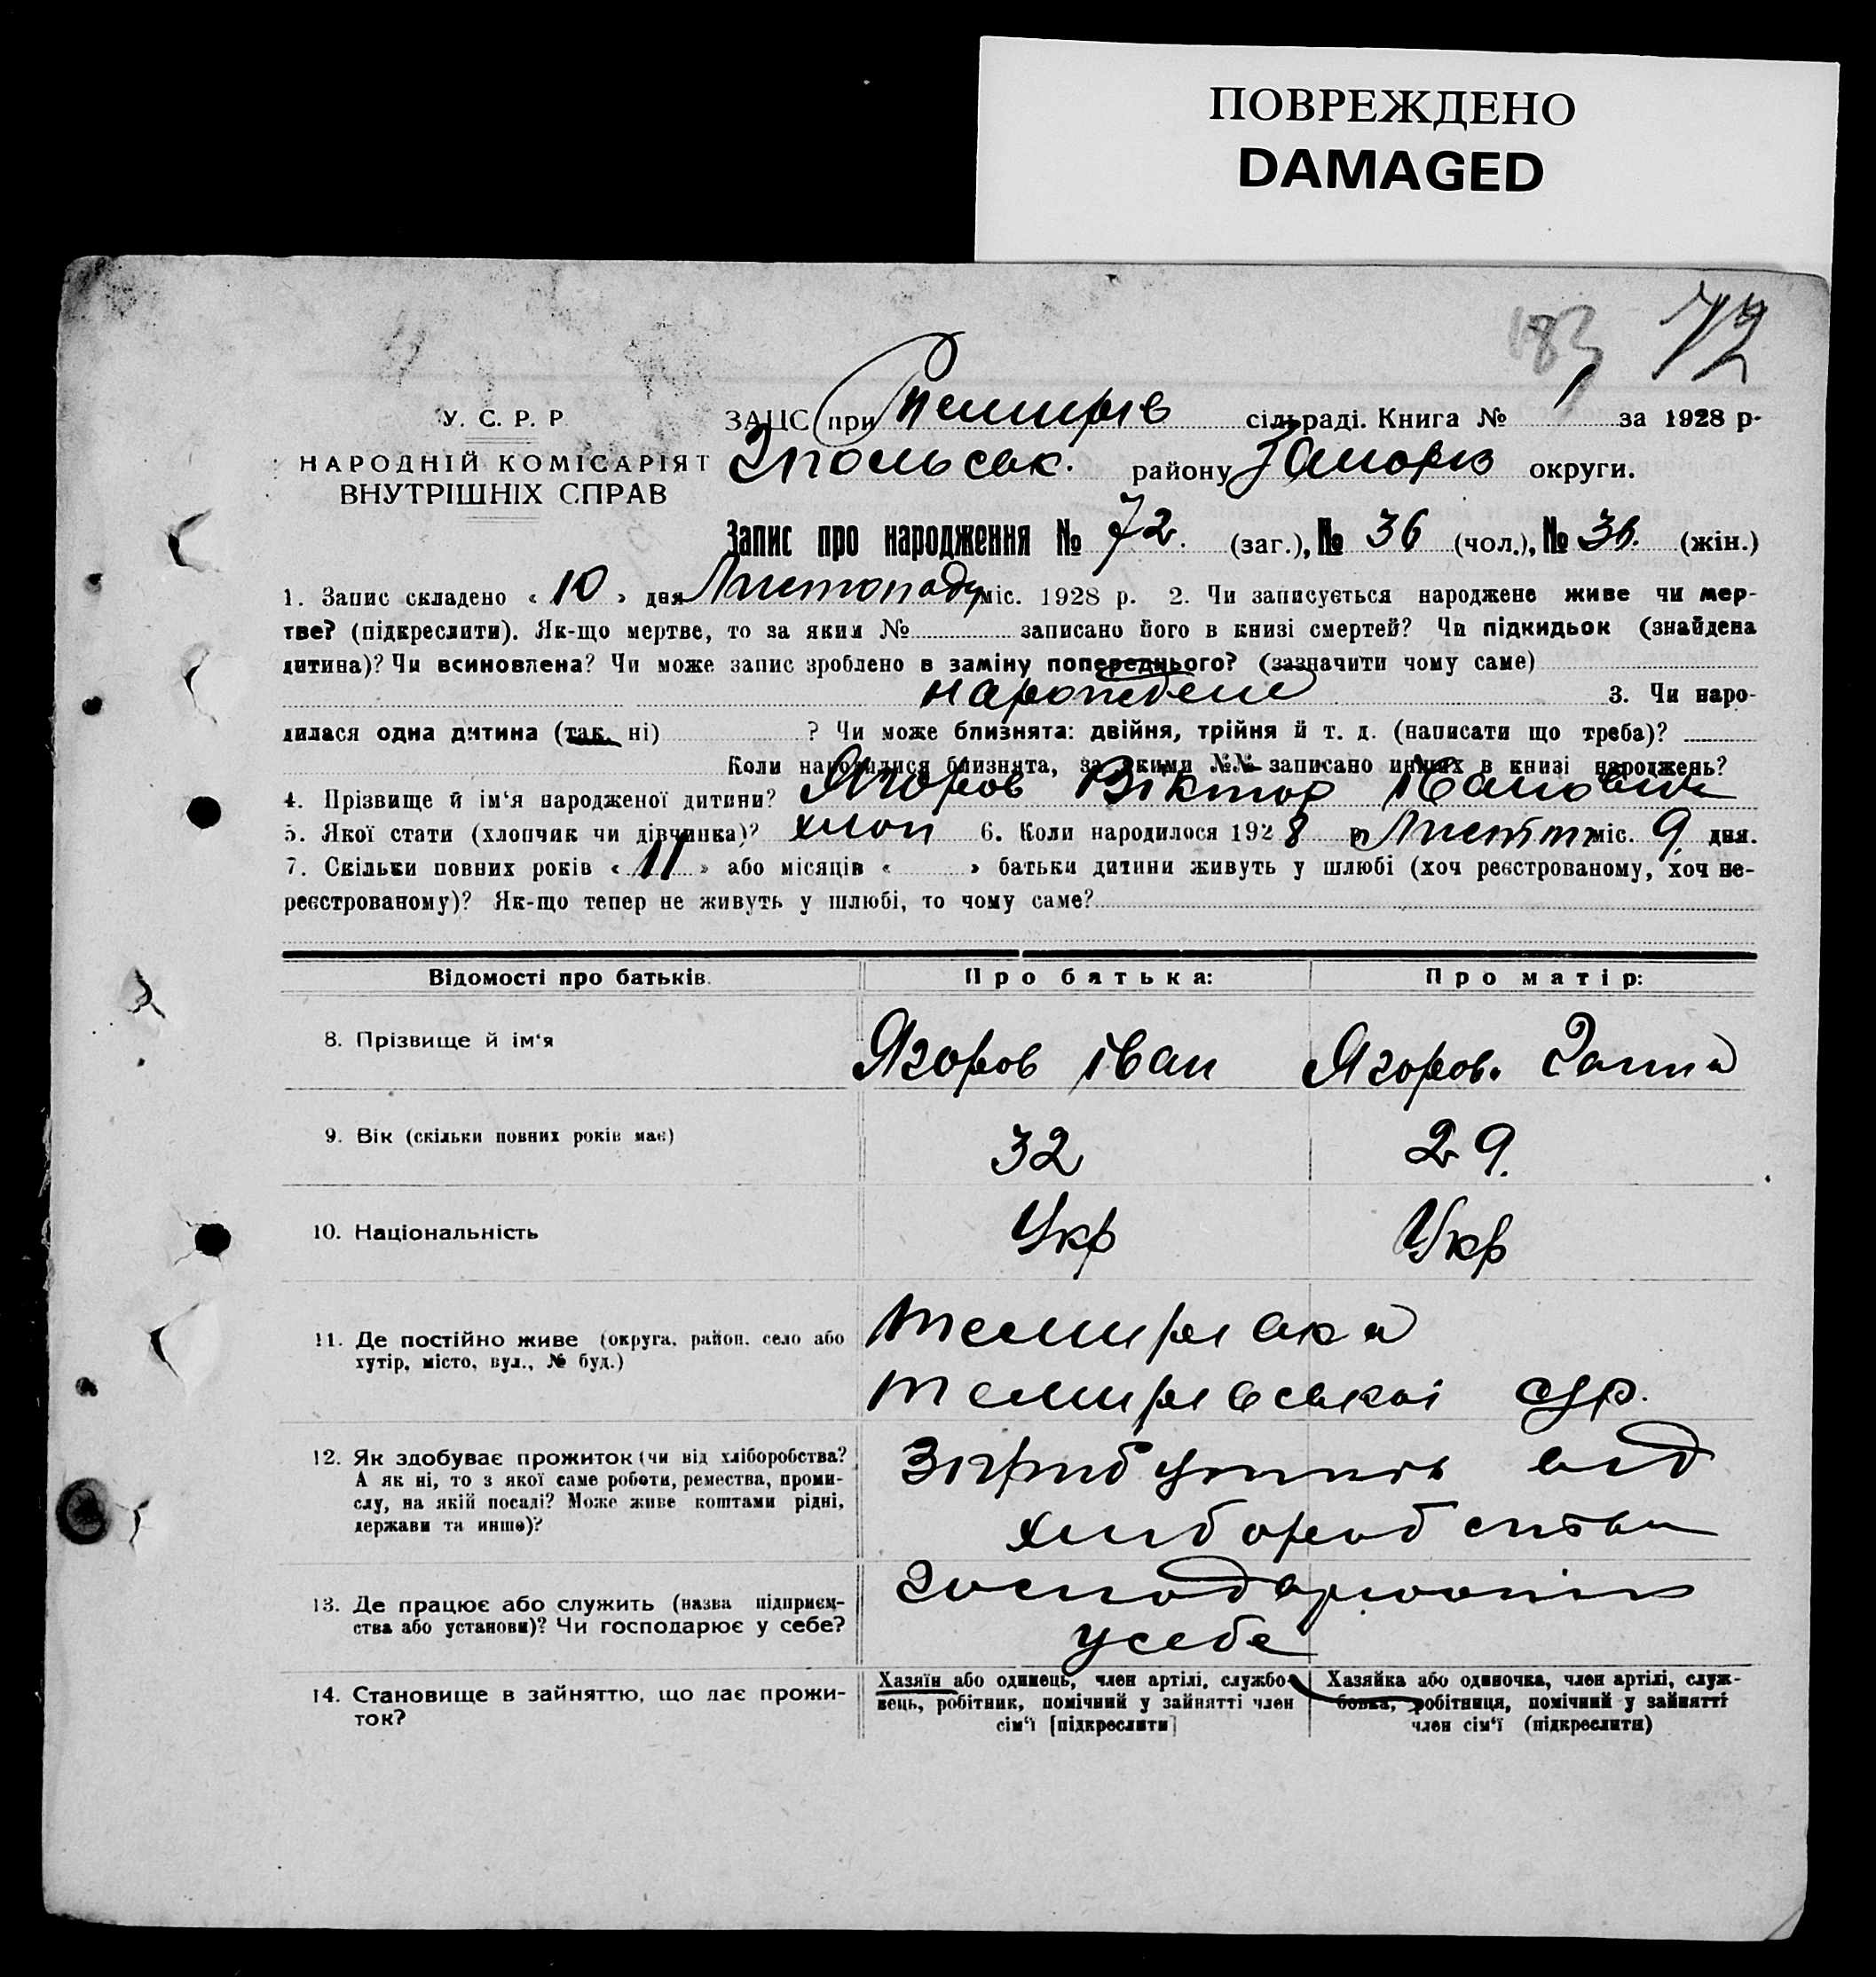 ПОВРЕЖДЕНО
DAMAGED
183 72
У. С. Р. Р.
НАРОДНІЙ КОМІСАРІЯТ
ВНУТРІШНІХ СПРАВ
ЗАЦС при Темирів сільраді. Книга № 1 за 1928 р.
Гпольськ. району Запоріз округи.
Запис про народження № 72. (заг.), № 36 (чол.), № 36. (жін.)
1. Запис складено « 10 » дня Листопаду міс. 1928 р. 2. Чи записується народжене живе чи мер-
тве? (підкреслити). Як-що мертве, то за яким № записано його в книзі смертей? Чи підкидьок (знайдена
дитина)? Чи всиновлена? Чи може запис зроблено в заміну попереднього? (зазначити чому саме)
народжене 3. Чи наро-
дилася одна дитина (так, ні) ? Чи може близнята: двійня, трійня й т. д. (написати що треба)?
Коли народилися близнята, за якими №№ записано инших в книзі народжень?
4. Прізвище й ім‘я народженої дитини? Ягоров Віктор Іванович
5. Якої стати (хлопчик чи дівчинка)? хлоп 6. Коли народилося 1928 р. Листоп міс. 9. дня.
7. Скільки повних років « 11 » або місяців « » батьки дитини живуть у шлюбі (хоч реєстрованому, хоч не-
реєстрованому)? Як-що тепер не живуть у шлюбі, то чому саме?
Відомості про батьків. Про батька: Про матір:
8. Прізвище й ім‘я Ягоров Іван Ягоров. Ганна
9. Вік (скільки повних років має) 32 29.
10. Національність Укр Укр
11. Де постійно живе (округа, район, село або
хутір, місто, вул., № буд.)
Темирівка
Темирівської с/р.
12. Як здобуває прожиток (чи від хліборобства?
А як ні, то з якої саме роботи, ремества, проми-
слу, на якій посаді? Може живе коштами рідні,
держави та инше)?
від
хліборобства
13. Де працює або служить (назва підприєм-
ства або установи)? Чи господарює у себе?
усебе
14. Становище в зайняттю, що дає прожи-
ток?
Хазяїн або одинець, член артілі, службо-
вець, робітник, помічний у зайнятті член
сім‘ї [підкреслити]
Хазяйка або одиночка, член артілі, служ-
бовка, робітниця, помічний у зайнятті
член сім‘ї (підкреслити)